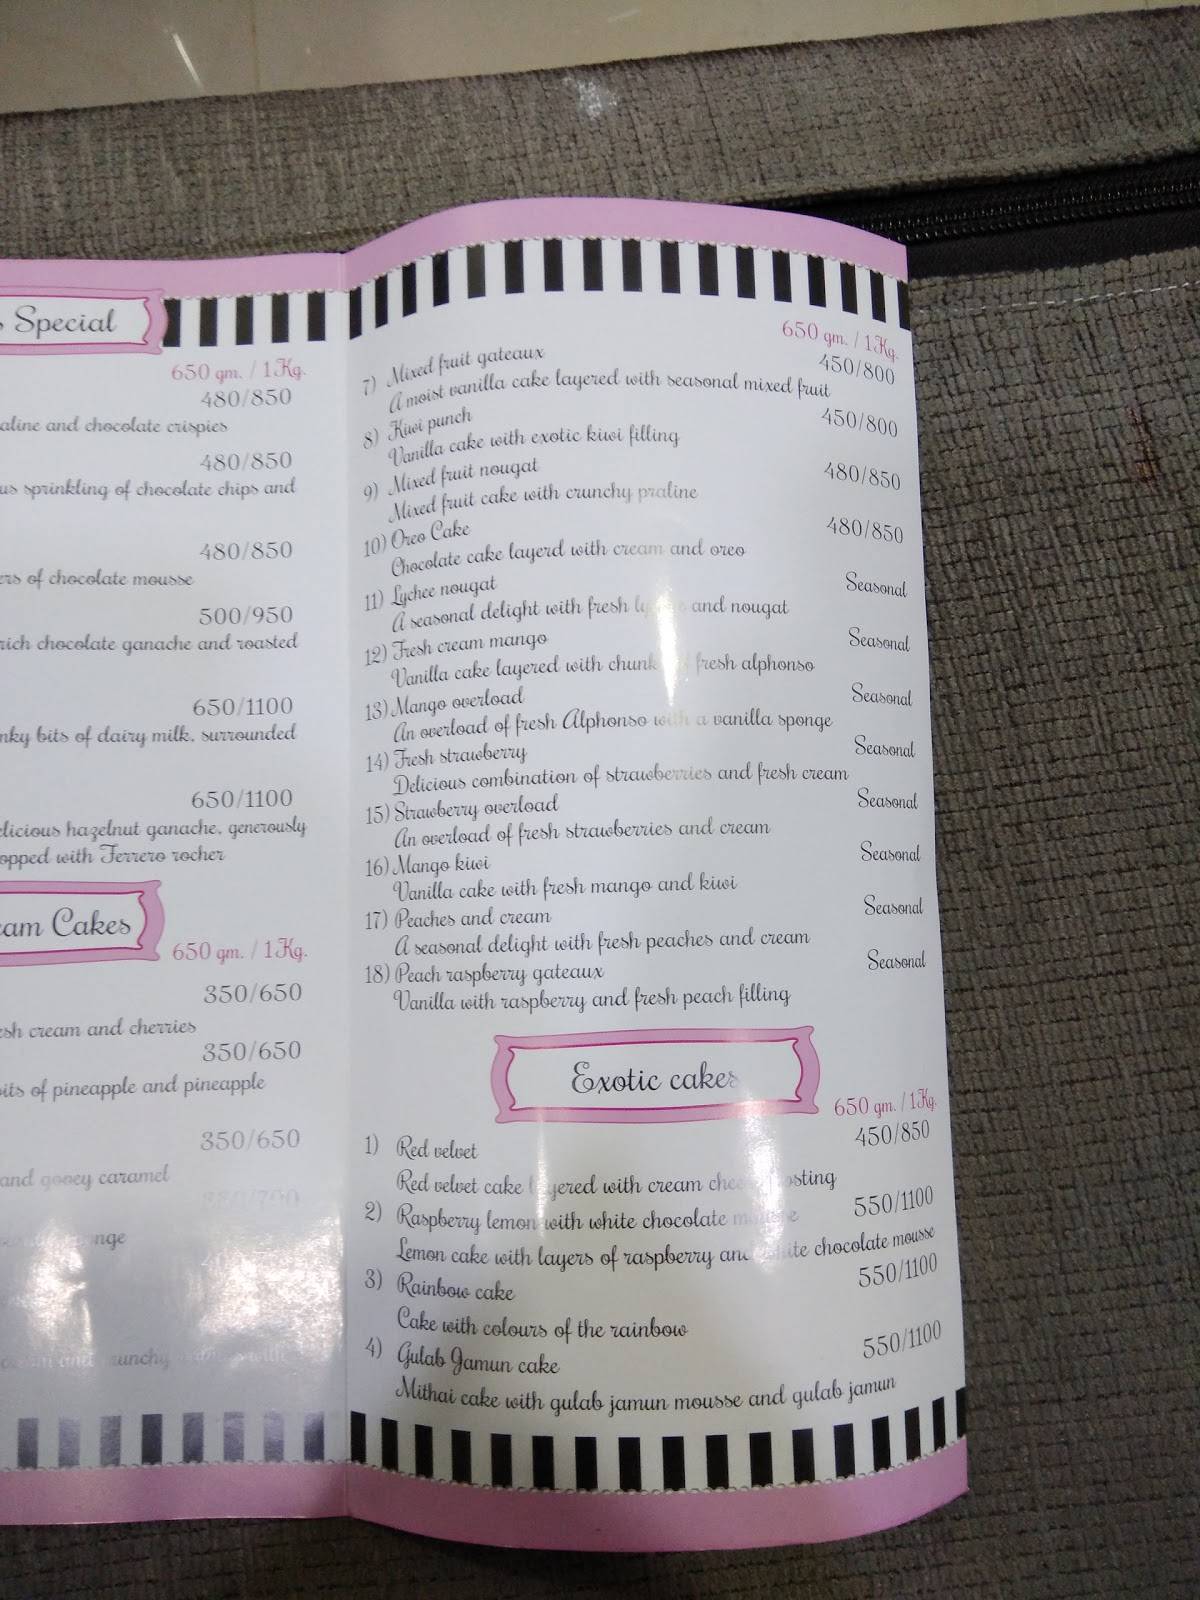 Special
650 gm. / 1Kg.
480/850
aline and chocolate crispies
480/850
us sprinkling of chocolate chips and
480/850
ers of chocolate mousse
500/950
rich chocolate ganache and roasted
650/1100
nky bits of dairy milk, surrounded
650/1100
licious hazelnut ganache, generously
opped with Ferrero rocher
am Cakes
650 gm. / 1Kg.
350/650
esh cream and cherries
350/650
bits of pineapple and pineapple
350/650
and gooey caramel
nge
and crunchy
650 gm. / 1Kg.
7) Mixed fruit gateaux 450/800
A moist vanilla cake layered with seasonal mixed fruit
8) Kiwi punch 450/800
Vanilla cake with exotic kiwi filling
9) Mixed fruit nougat 480/850
Mixed fruit cake with crunchy praline
10) Oreo Cake 480/850
Chocolate cake layerd with cream and oreo
11) Lychee nougat Seasonal
A seasonal delight with fresh and nougat
12) Fresh cream mango Seasonal
Vanilla cake layered with chunk fresh alphonso
13) Mango overload Seasonal
An overload of fresh Alphonso with a vanilla sponge
14) Fresh strawberry Seasonal
Delicious combination of strawberries and fresh cream
15) Strawberry overload Seasonal
An overload of fresh strawberries and cream
16) Mango kiwi Seasonal
Vanilla cake with fresh mango and kiwi
17) Peaches and cream Seasonal
A seasonal delight with fresh peaches and cream
18) Peach raspberry gateaux Seasonal
Vanilla with raspberry and fresh peach filling
Exotic cakes
650 gm. / 1Kg.
1) Red velvet 450/850
Red velvet cake layered with cream cheese frosting
2) Raspberry lemon with white chocolate mousse 550/1100
Lemon cake with layers of raspberry and white chocolate mousse
3) Rainbow cake 550/1100
Cake with colours of the rainbow
4) Gulab Jamun cake 550/1100
Mithai cake with gulab jamun mousse and gulab jamun